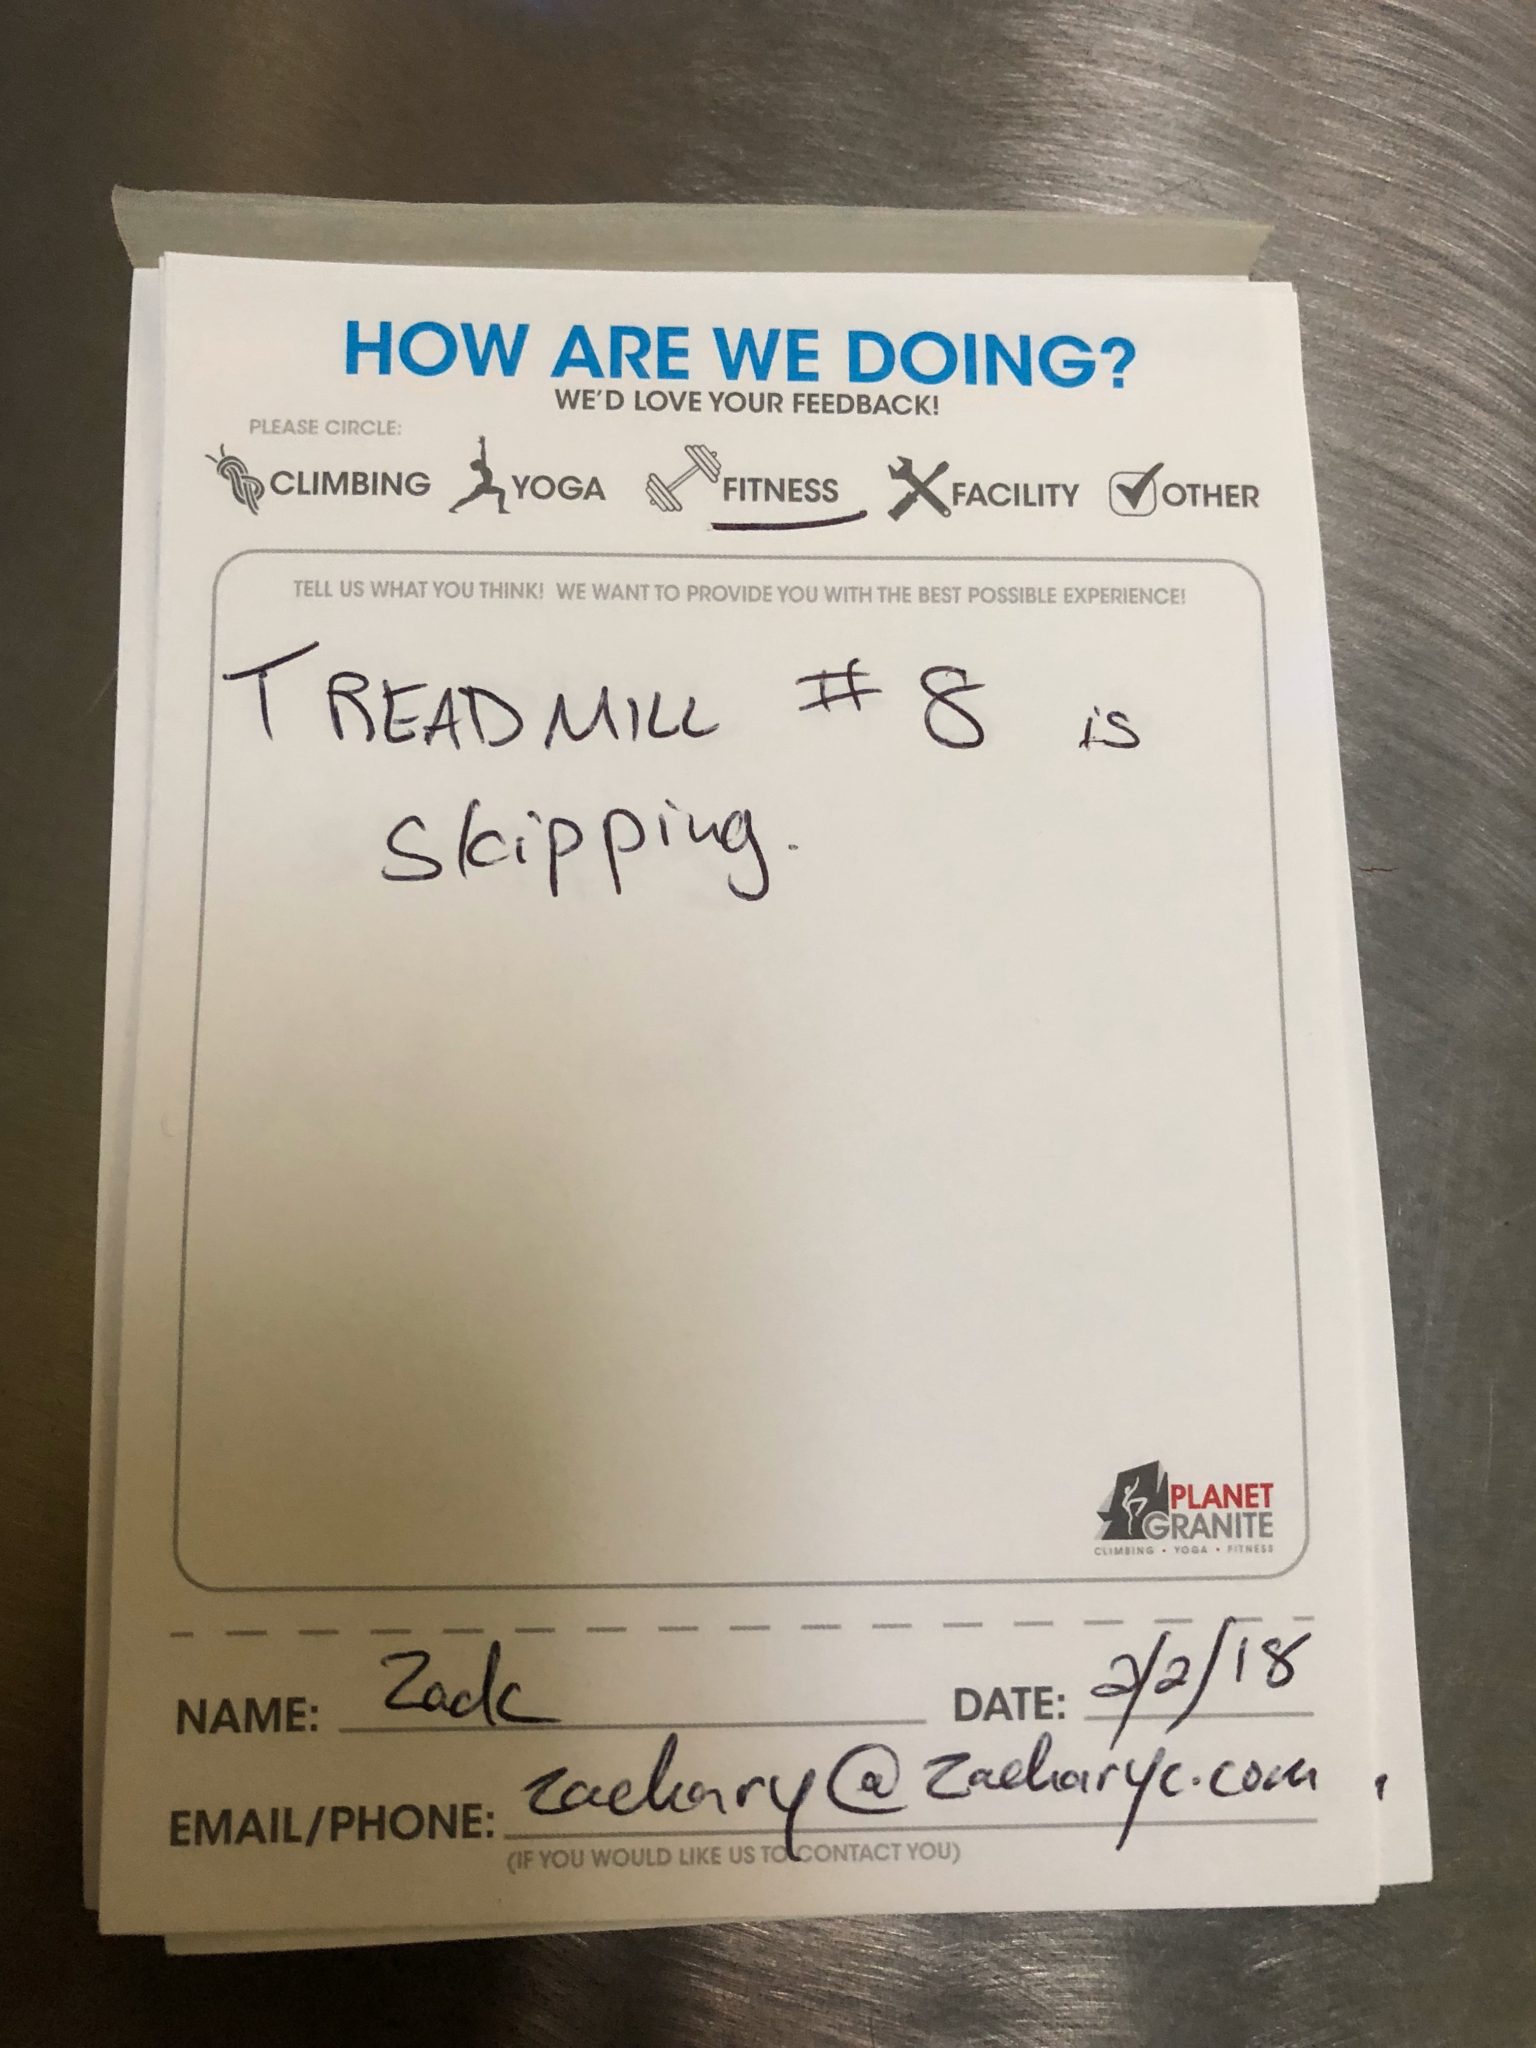 HOW ARE WE DOING?
WE'D LOVE YOUR FEEDBACK!
PLEASE CIRCLE:
CLIMBING YOGA FITNESS FACILITY OTHER
TELL US WHAT YOU THINK! WE WANT TO PROVIDE YOU WITH THE BEST POSSIBLE EXPERIENCE!
TREADMILL #8 is
skipping.
PLANET
GRANITE
CLIMBING • YOGA • FITNESS
NAME: Zack DATE: 2/2/18
EMAIL/PHONE: zachary@zacharyc.com
(IF YOU WOULD LIKE US TO CONTACT YOU)